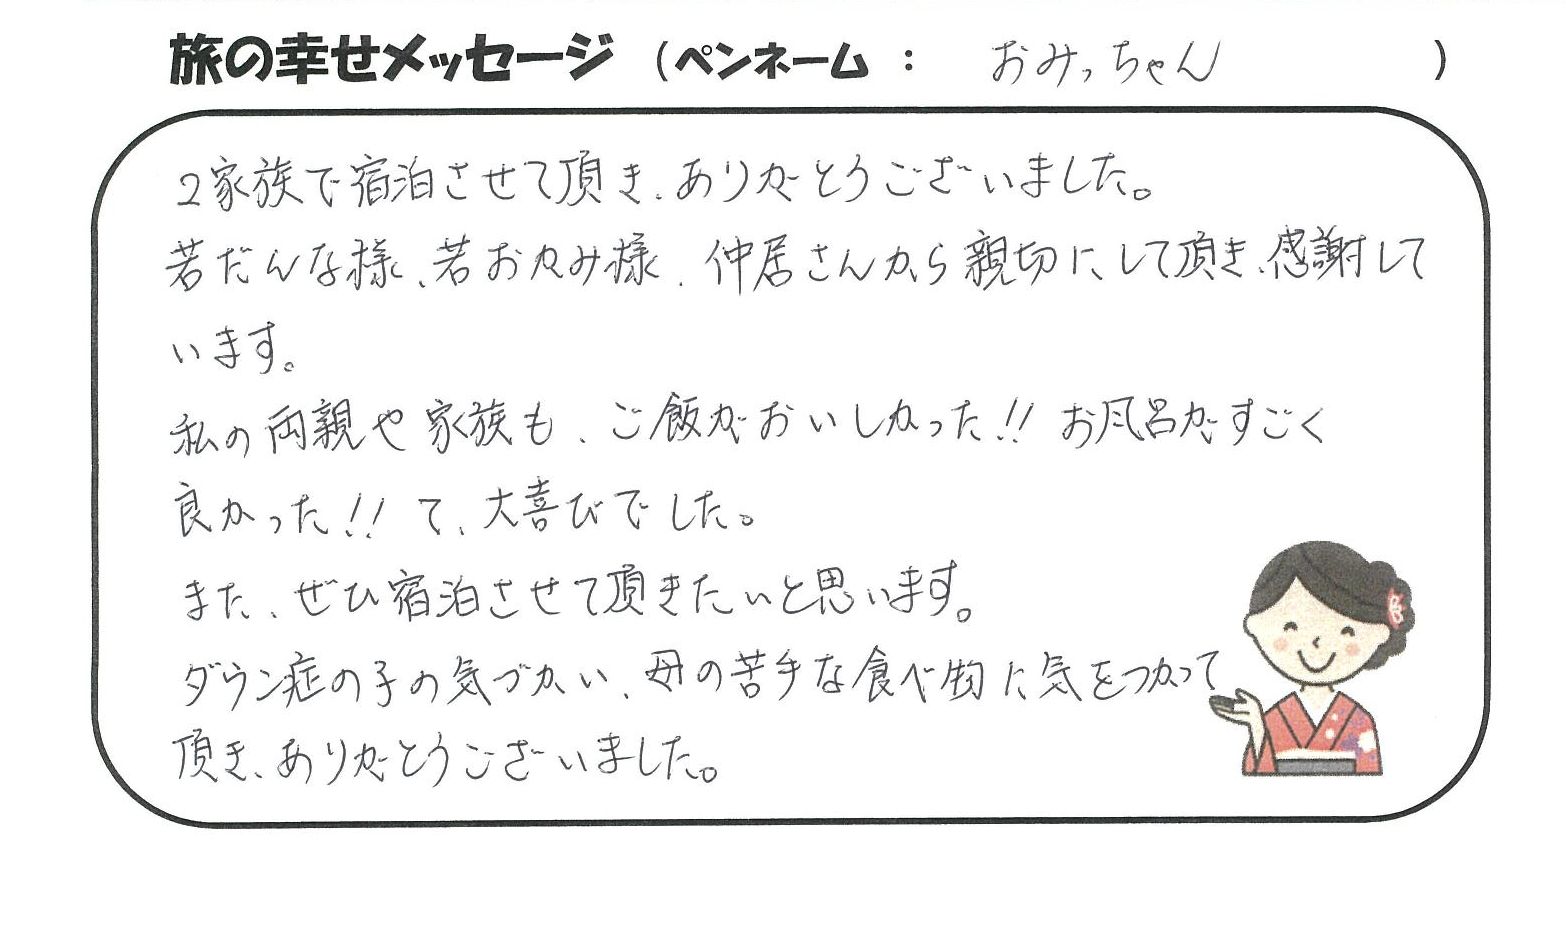 旅の幸せメッセージ（ペンネーム： おみっちゃん ）
2家族で宿泊させて頂き、ありがとうございました。
若だんな様、若おかみ様、仲居さんから親切にして頂き、感謝して
います。
私の両親や家族も、ご飯がおいしかった!! お風呂がすごく
良かった!! て、大喜びでした。
また、ぜひ宿泊させて頂きたいと思います。
ダウン症の子の気づかい、母の苦手な食べ物に気をつかって
頂き、ありがとうございました。